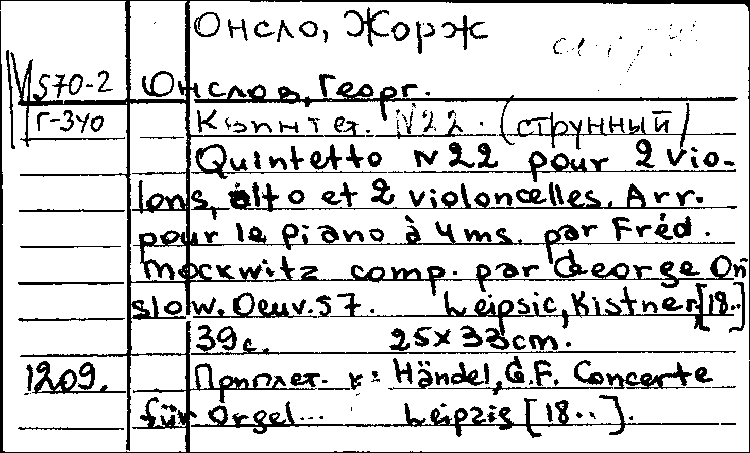 Онсло, Жорж
M 570-2 Юнслов, Георг.
Г-340 Квинтет. N22. (струнный)
Quintetto N22 pour 2 vio-
lons, alto et 2 violoncelles. Arr.
pour le piano à 4 ms. par Fréd.
Mockwitz comp. par George On
slow. Oeuv. 57. Leipsic, Kistner, [18..]
39 с. 25x33 cm.
1209. Приплет. к: Händel, G.F. Concerte
für Orgel... Leipzig [18..].